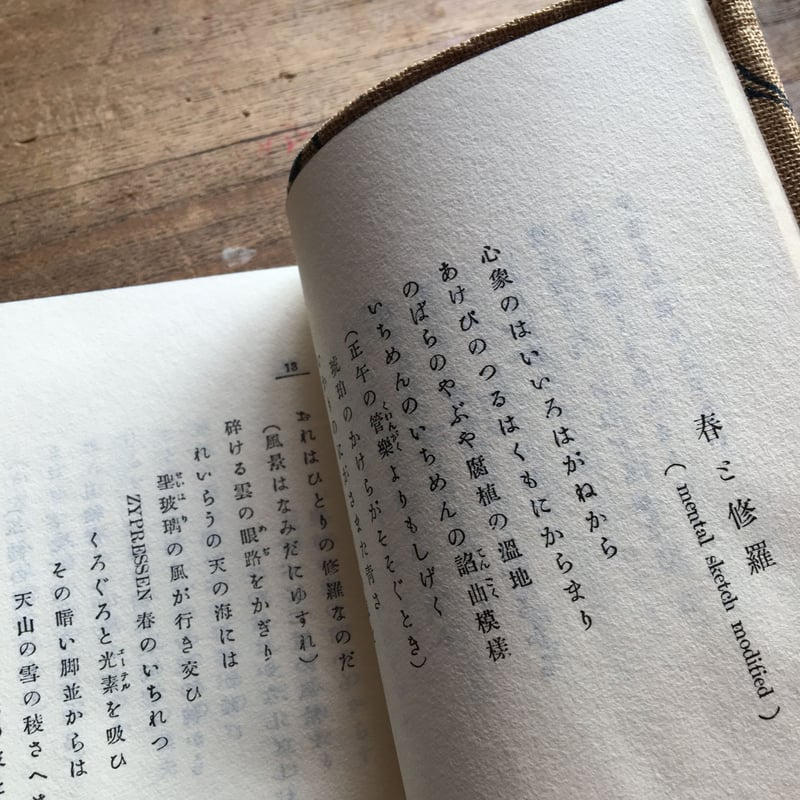 春と修羅
(mental sketch modified)
心象のはいいろはがねから
あけびのつるはくもにからまり
のばらのやぶや腐植の濕地
いちめんのいちめんの諂曲模様
てんごく
(正午の管樂よりもしげく
くわんがく
琥珀のかけらがそそぐとき)
18
おれはひとりの修羅なのだ
(風景はなみだにゆすれ)
砕ける雲の眼路をかぎり
めぢ
れいらうの天の海には
聖玻璃の風が行き交ひ
せいはり
ZYPRESSEN 春のいちれつ
くろぐろと光素を吸ひ
エーテル
その暗い脚並からは
天山の雪の稜さへ